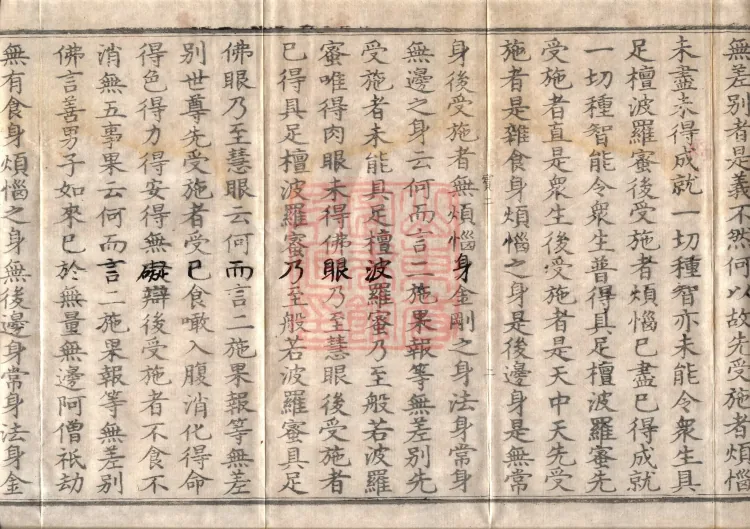 無差別者是義不然何以故先受施者煩惱
未盡未得成就一切種智亦未能令衆生具
足檀波羅蜜後受施者煩惱已盡已得成就
一切種智能令衆生普得具足檀波羅蜜先
受施者直是衆生後受施者是天中天先受
施者是雜食身煩惱之身是後邊身是無常
身後受施者無煩惱身金剛之身法身常身
無邊之身云何而言二施果報等無差別先
受施者未能具足檀波羅蜜乃至般若波羅
蜜唯得肉眼未得佛眼乃至慧眼後受施者
已得具足檀波羅蜜乃至般若波羅蜜具足
佛眼乃至慧眼云何而言二施果報等無差
別世尊先受施者受已食噉入腹消化得命
得色得力得安得無礙辯後受施者不食不
消無五事果云何而言二施果報等無差別
佛言善男子如來已於無量無邊阿僧祇劫
無有食身煩惱之身無後邊身常身法身金